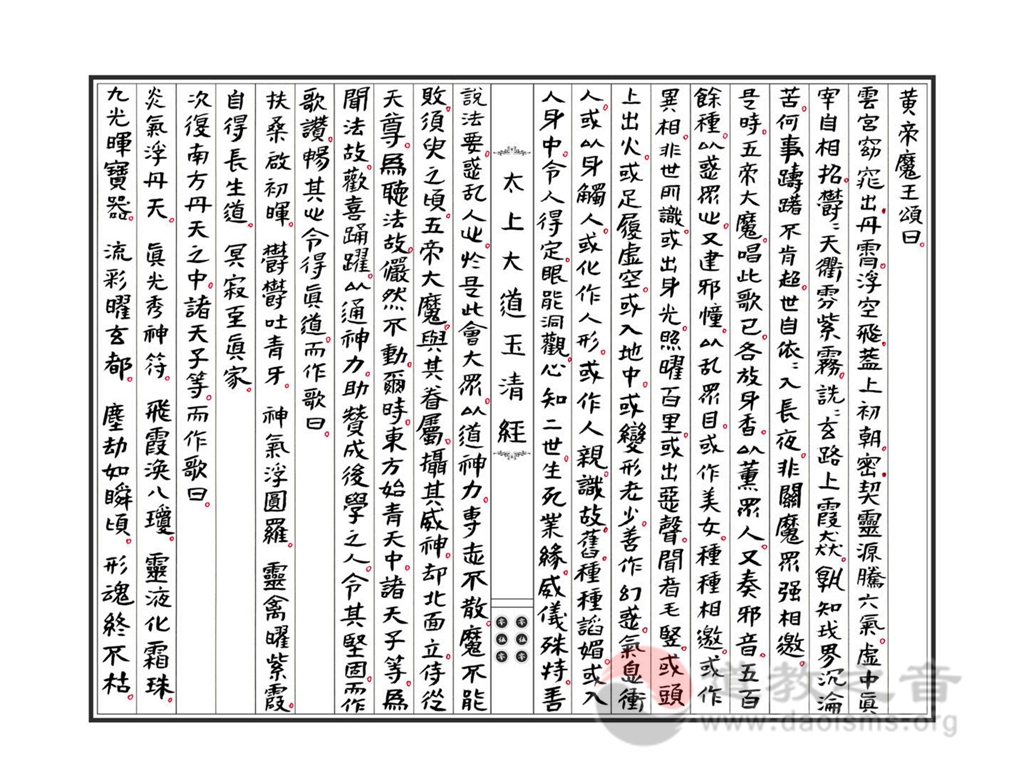 黄帝魔王頌曰
雲宮窈窕出丹霄浮空飛蓋上初朝密契靈源騰六氣虛中眞
宰自相招鬱〻天衢雰紫霧詵〻玄路上霞猋孰知戎界沉淪
苦何事躊躇不肯超世自依〻入長夜非關魔眾强相邀
是時五帝大魔唱此歌已各放身香以薰眾人又奏邪音五百
餘種以惑眾心又建邪幢以乱眾目或作美女種種相邀或作
異相非世所識或出身光照曜百里或出惡聲聞者毛竪或頭
上出火或足履虛空或入地中或變形老少善作幻惑氣息衝
人或以身觸人或化作人形或作人親識故舊種種謟媚或入
人身中令人得定眼能洞觀心知二世生死業緣威儀殊特善
太上大道玉清経
說法要惑乱人心扵是此會大眾以道神力專志不散魔不能
敗須臾之頃五帝大魔與其眷屬攝其威神却北面立侍從
天尊爲聽法故儼然不動爾時東方始青天中諸天子等爲
聞法故歡喜踊躍以通神力助贊成後學之人令其堅固而作
歌讚暢其心令得眞道而作歌曰
扶桑啟初暉 鬱鬱吐青牙 神氣浮圓羅 靈禽曜紫霞
自得長生道 冥寂至眞家
次復南方丹天之中諸天子等而作歌曰
炎氣浮丹天 眞光秀神符 飛霞渙八瓊 靈液化霜珠
九光暉寶器 流彩曜玄都 塵劫如瞬頃 形魂終不枯
道教之音
www.daoisms.org